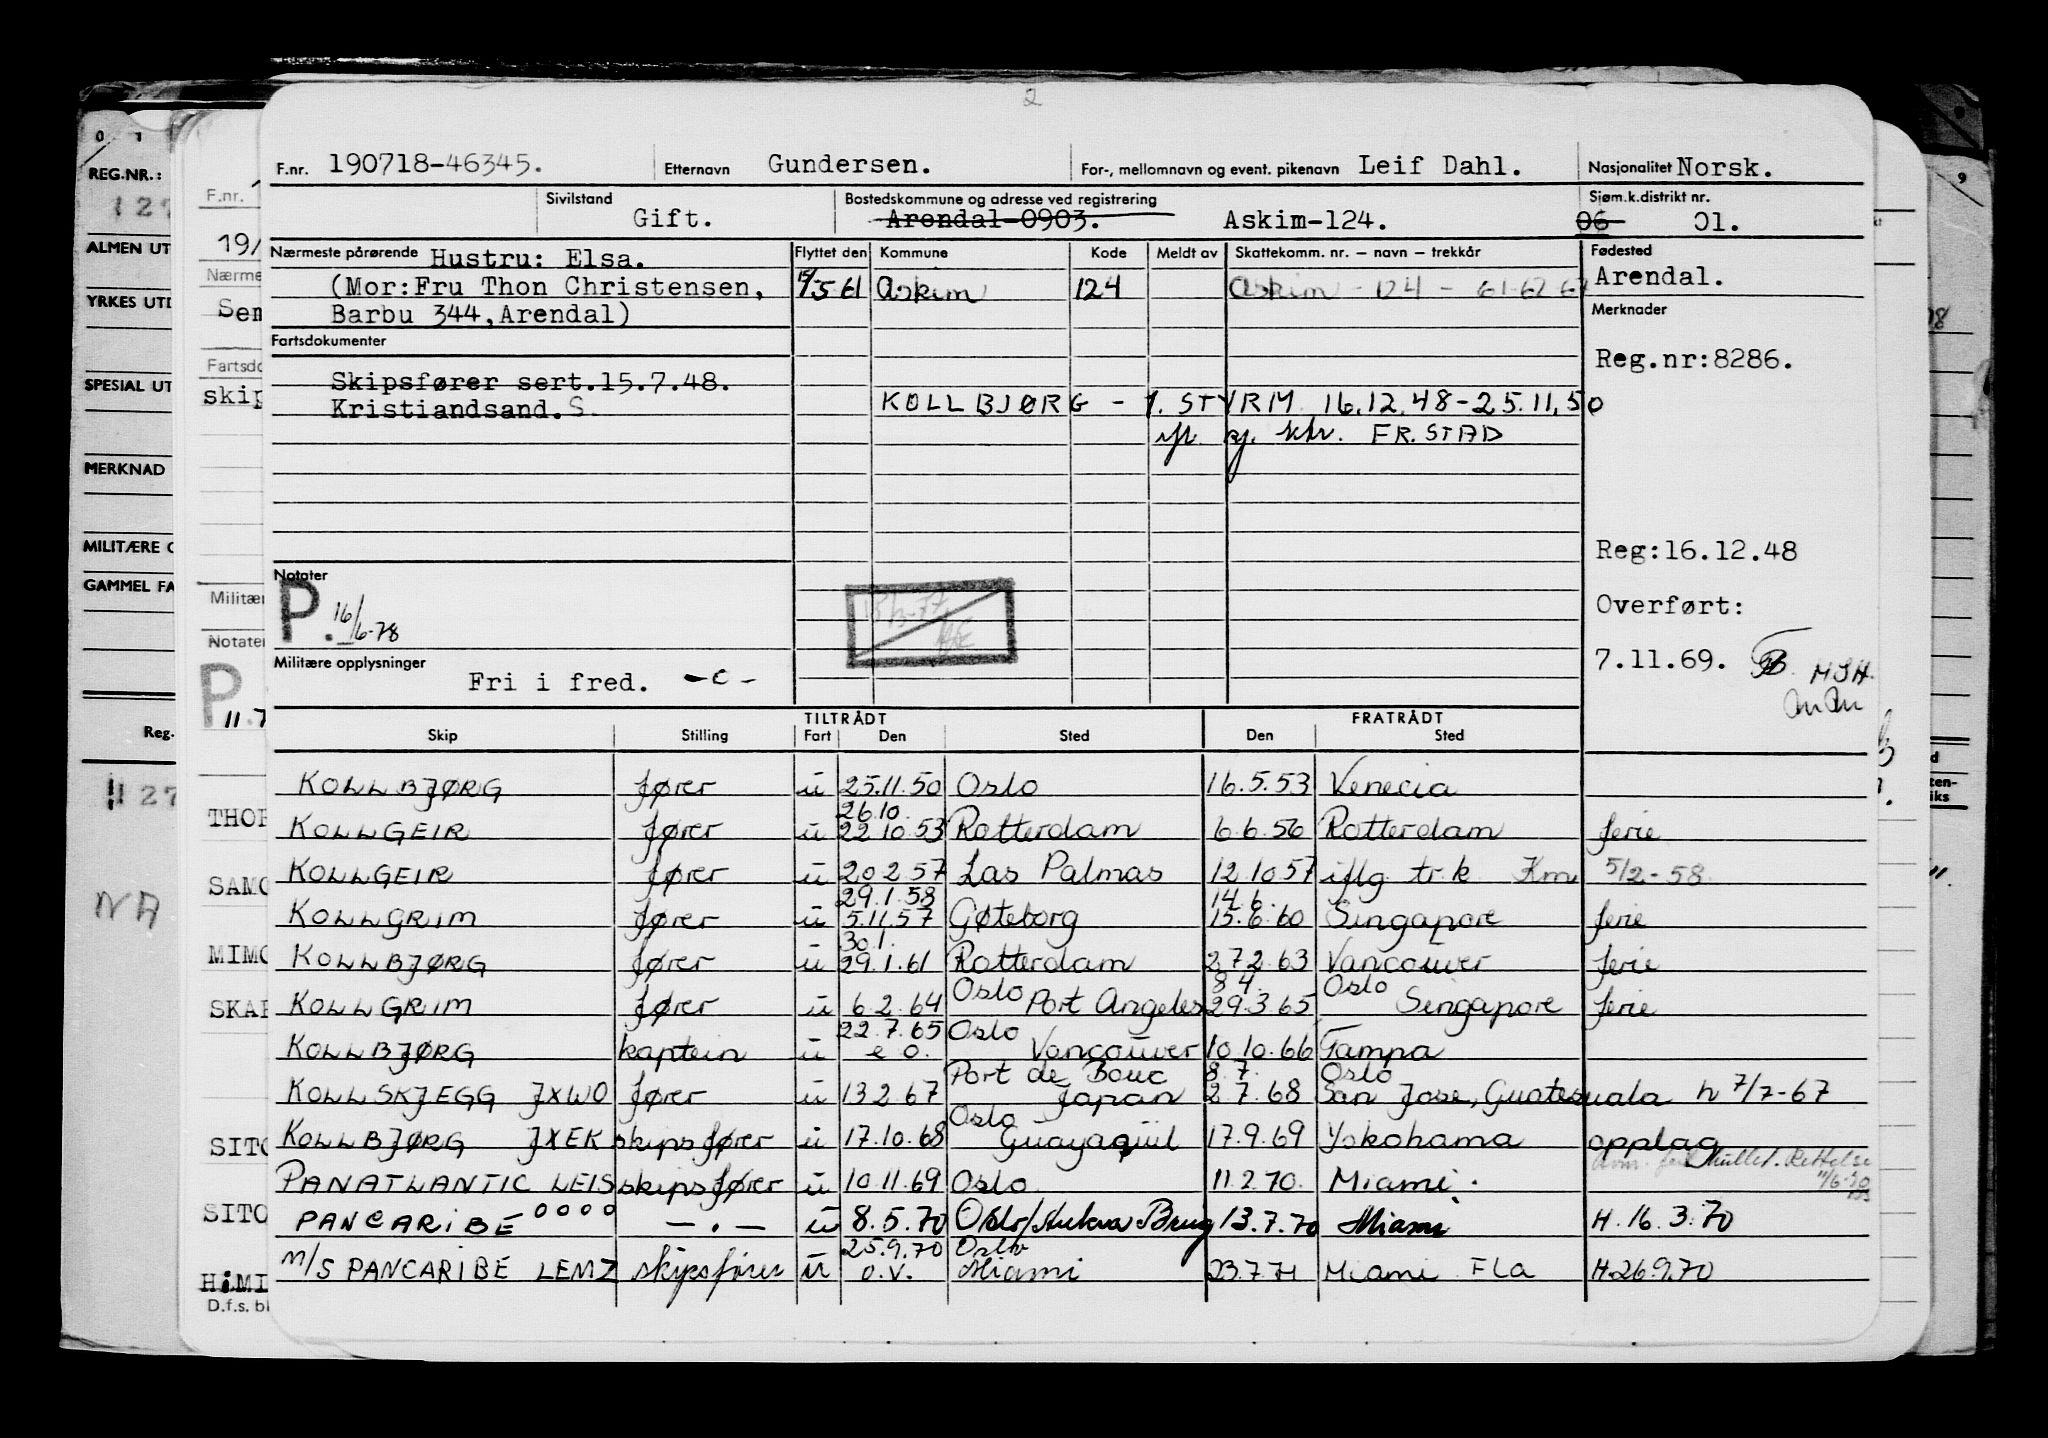 2
F.nr. 190718-46345. Etternavn Gundersen. For-, mellomnavn og event. pikenavn Leif Dahl. Nasjonalitet Norsk.
Sivilstand Gift. Bostedskommune og adresse ved registrering Arendal-0903. Askim-124. Sjøm.k.distrikt nr. 06 01.
Nærmeste pårørende Hustru: Elsa. Flyttet den Kommune Kode Meldt av Skattekomm. nr. – navn – trekkår Fødested
(Mor:Fru Thon Christensen, 15/5 61 Askim 124 Askim - 124 - 61-62 Arendal.
Barbu 344,Arendal) Merknader
Fartsdokumenter
Reg.nr:8286.
Skipsfører sert.15.7.48.
Kristiandsand.S. KOLLBJØRG - 1. STYRM 16.12.48-25.11.50
FR.STAD
Reg:16.12.48
Notater
P. 16/6-78
Overført:
Militære opplysninger
Fri i fred. -c-
7.11.69. MSH.
TILTRÅDT FRATRÅDT
Skip Stilling Fart Den Sted Den Sted
KOLLBJØRG fører u 25.11.50 Oslo 16.5.53 Venecia
26.10.
KOLLGEIR fører u 22.10.53 Rotterdam 6.6.56 Rotterdam ferie
KOLLGEIR fører u 20.2.57 Las Palmas 12.10.57 iflg tr.k 5/2-58
29.1.58 14.6.
KOLLGRIM fører u 5.11.57 Gøteborg 15.6.60 Singapore ferie
30.1.
KOLLBJØRG fører u 29.1.61 Rotterdam 27.2.63 Vancouver ferie
Oslo 8.4. Oslo
KOLLGRIM fører u 6.2.64 Port Angeles 29.3.65 Singapore ferie
22.7.65 Oslo
KOLLBJØRG kaptein u e.o. Vancouver 10.10.66 Tampa
Port de Bouc 8.7. Oslo
KOLLSKJEGG JXWO fører u 13.2.67 Japan 2.7.68 San Jose, Guatemala h 7/7-67
Oslo
KOLLBJØRG JXEK skipsfører u 17.10.68 Guayaquil 17.9.69 Yokohama opplag
PANATLANTIC LEIS skipsfører u 10.11.69 Oslo 11.2.70. Miami.
PANCARIBE 0000 — . — u 8.5.70 Oslo/Aukra Brug 13.7.70 Miami H. 16.3.70
25.9.70 Oslo
M/S PANCARIBE LEMZ skipsfører u o.v. Miami 23.7.71 Miami Fla H.26.9.70
0 1
REG.NR.:
127
ALMEN UT
YRKES UTD
SPESIAL UT
MERKNAD
MILITÆRE O
GAMMEL FA
Reg.
1127
NA
F.nr.
19/
Nærme
Sem
Fartsdo
skip
Militær
Notater
P
11.7
THOR
SAMO
MIMO
SKAR
SITO
SITO
H.MI
D.f.s. bl
9